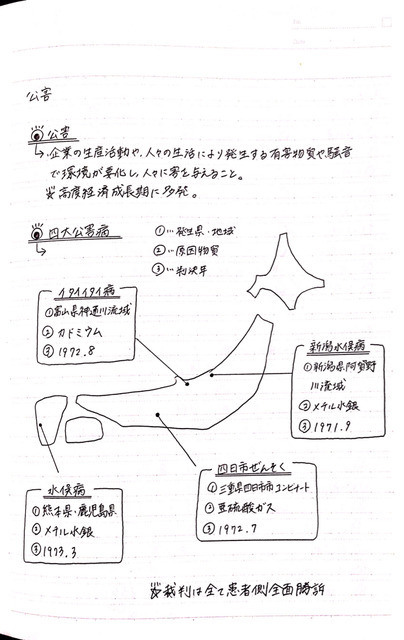 公害
公害
企業の生産活動や、人々の生活により発生する有害物質や騒音
で環境が悪化し、人々に害を与えること。
※高度経済成長期に多発。
四大公害病
①…発生県・地域
②…原因物質
③…判決年
イタイイタイ病
①富山県神通川流域
②カドミウム
③1972.8
新潟水俣病
①新潟県阿賀野
川流域
②メチル水銀
③1971.9
四日市ぜんそく
①三重県四日市市コンビナート
②亜硫酸ガス
③1972.7
水俣病
①熊本県・鹿児島県
②メチル水銀
③1973.3
※裁判は全て患者側全面勝訴